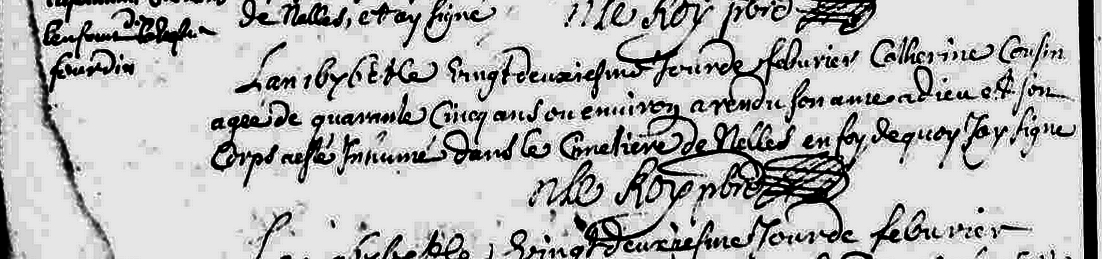 de Nelles, et ay signé
N le Roy pbre
lenfant
fourdin
Lan 1676 et le vingt deuxiesme Jour de febvrier Catherine Cousin
agée de quarante Cinq ans ou environ a rendu son ame a dieu et son
Corps a esté Inhumé dans le Cimetiere de Nelles en foy de quoy Jay signé
N le Roy pbre
le vingt deuxiesme Jour de febvrier